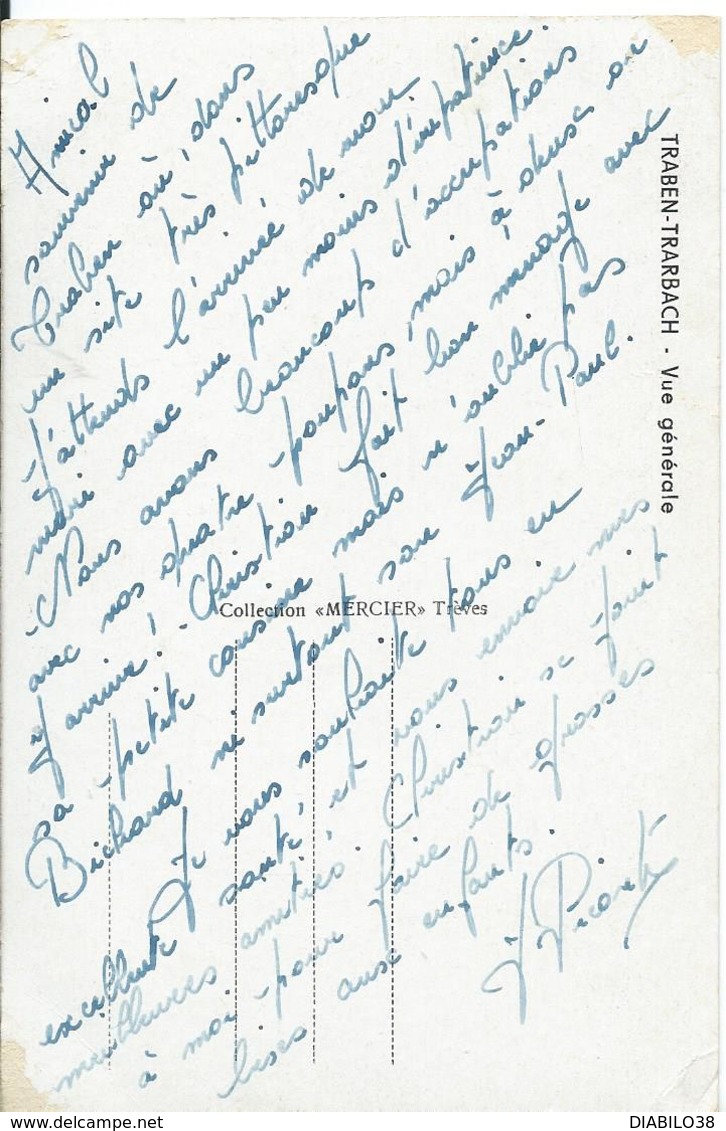 Amical
souvenir de
Traben où, dans
un site très pittoresque
j'attends l'arrivée de mon
mari avec un peu moins d'impatience.
Nous avons beaucoup d'occupations
avec nos quatre poupons, mais à deux on
y arrive! Christian fait bon ménage avec
sa petite cousine mais n'oublie pas
Bichard ni surtout son Jean-Paul.
Je vous souhaite tous en
excellente santé, et vous envoie mes
meilleures amitiés. Christian se joint
à moi pour faire de grosses
bises aux enfants.
J Picouts
TRABEN-TRARBACH - Vue générale
Collection «MERCIER» Trèves
DIABILO38